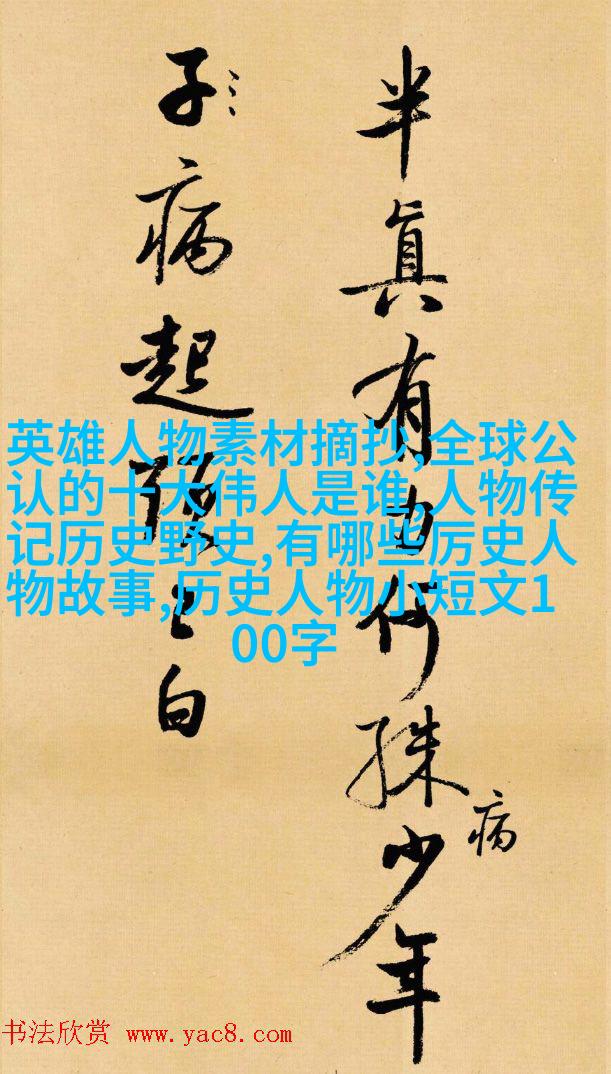 半真有力何殊少年
病
子病起頭已白
英雄人物素材摘抄,全球公
认的十大伟人是谁,人物传
记历史野史,有哪些厉史人
物故事,历史人物小短文1
00字
书法欣赏 www.yac8.com